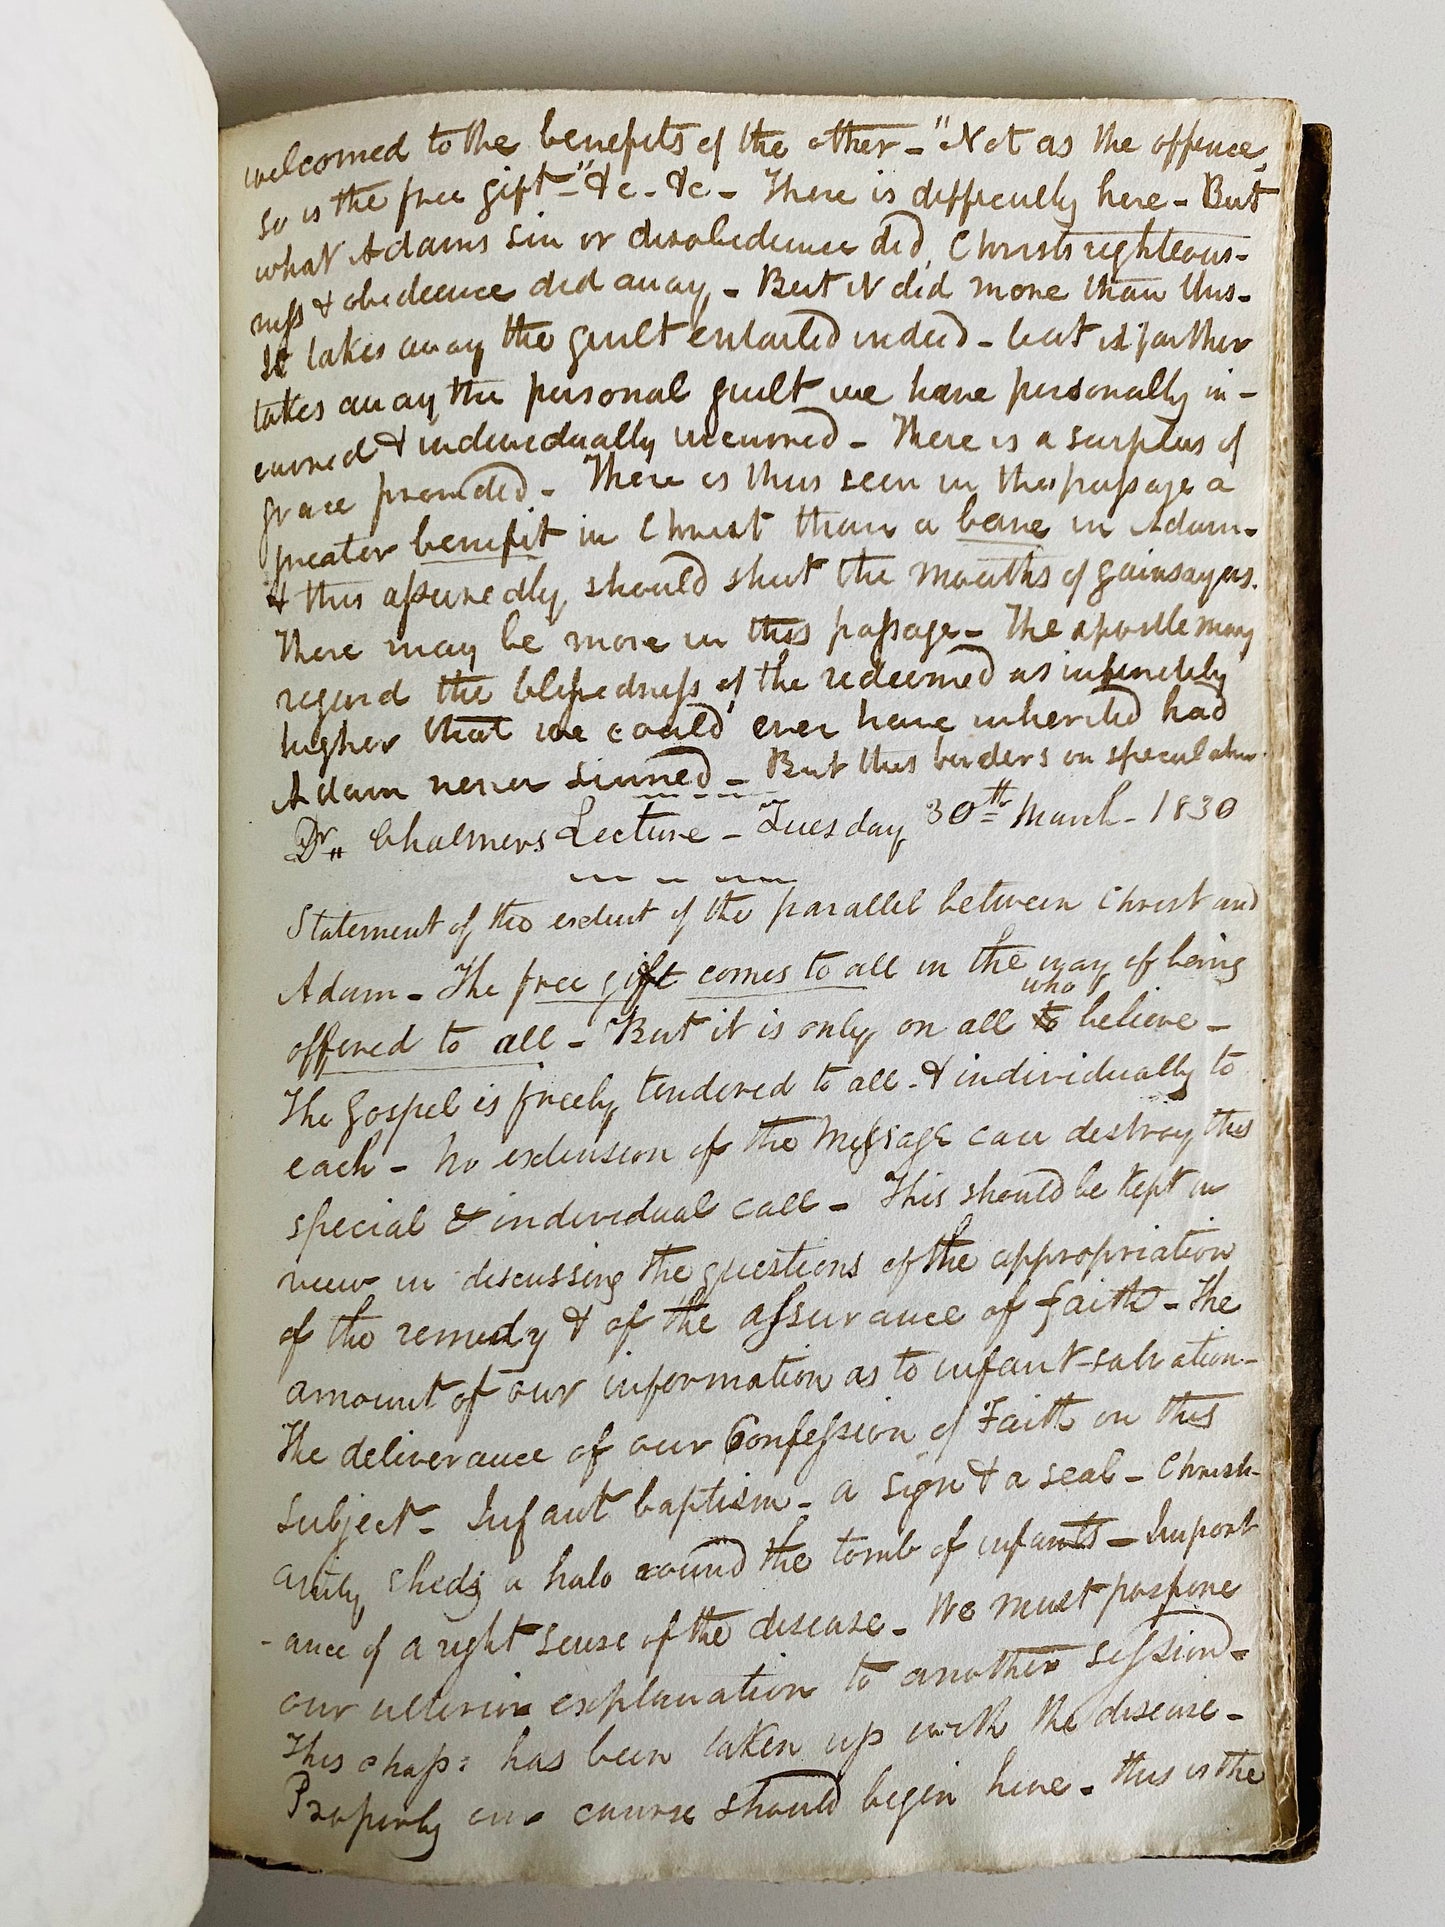 welcomed to the benefits of the other - "Not as the offence,
so is the free gift -" &c - &c - There is difficulty here - But
what Adams sin or disobedience did, Christs righteous-
ness & obedience did away, - But it did more than this -
It takes away the guilt entailed indeed - but it farther
takes away the personal guilt we have personally in-
curred & individually incurred - There is a surplus of
grace provided - There is thus seen in this passage a
greater benefit in Christ than a bane in Adam -
& this assuredly, should shut the mouths of gainsayers.
There may be more in this passage - The apostle may
regard the blessedness of the redeemed as infinitely
higher that we could ever have inherited had
Adam never sinned - But this borders on speculation
Dr. Chalmers Lecture - Tuesday 30th March - 1830
Statement of the extent of the parallel between Christ and
Adam - The free gift comes to all in the way of being
offered to all - But it is only on all to who believe -
The Gospel is freely tendered to all - & individually to
each - No extension of the Message can destroy this
special & individual call - This should be kept in
view in discussing the questions of the appropriation
of the remedy & of the assurance of faith - The
amount of our information as to infant-salvation -
The deliverance of our Confession of Faith on this
subject - Infant baptism - a sign & a seal - Christi-
anity, sheds a halo round the tomb of infants - Import
-ance of a right sense of the disease - We must pospone
our ulterior explanation to another session -
This chap: has been taken up with the disease -
Properly our course should begin here - this is the